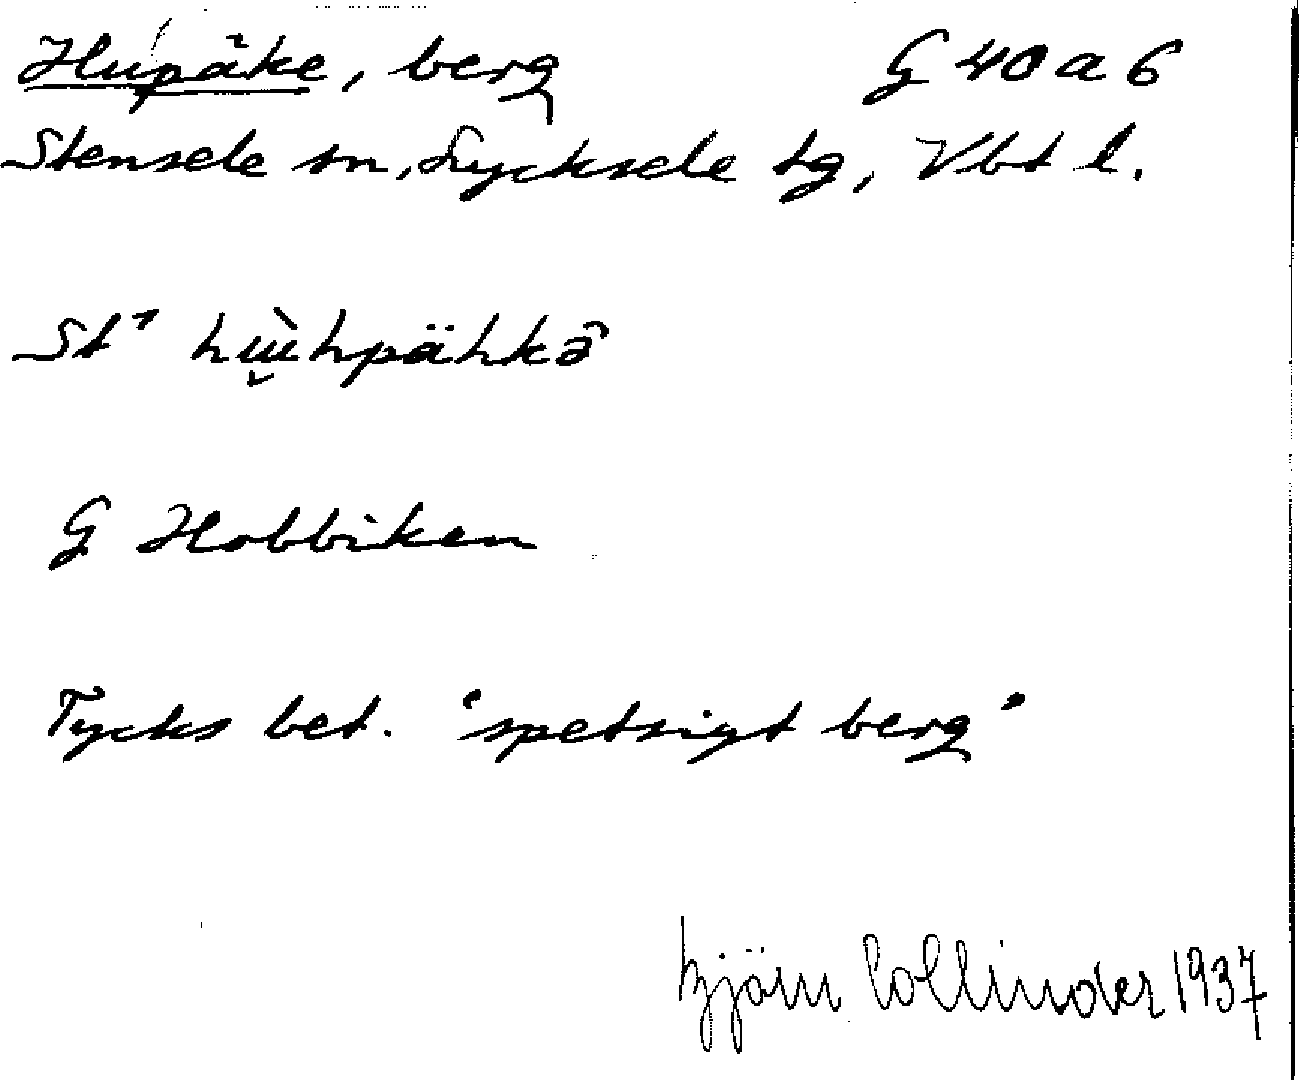 Hupāke, berg G 40 a 6
Stensele sn, Lycksele tg, Vbt l.
St¹ hɯ̬̀hpähkə̑
G Hobbiken
Tycks bet. "spetsigt berg"
Björn Collinder 1937